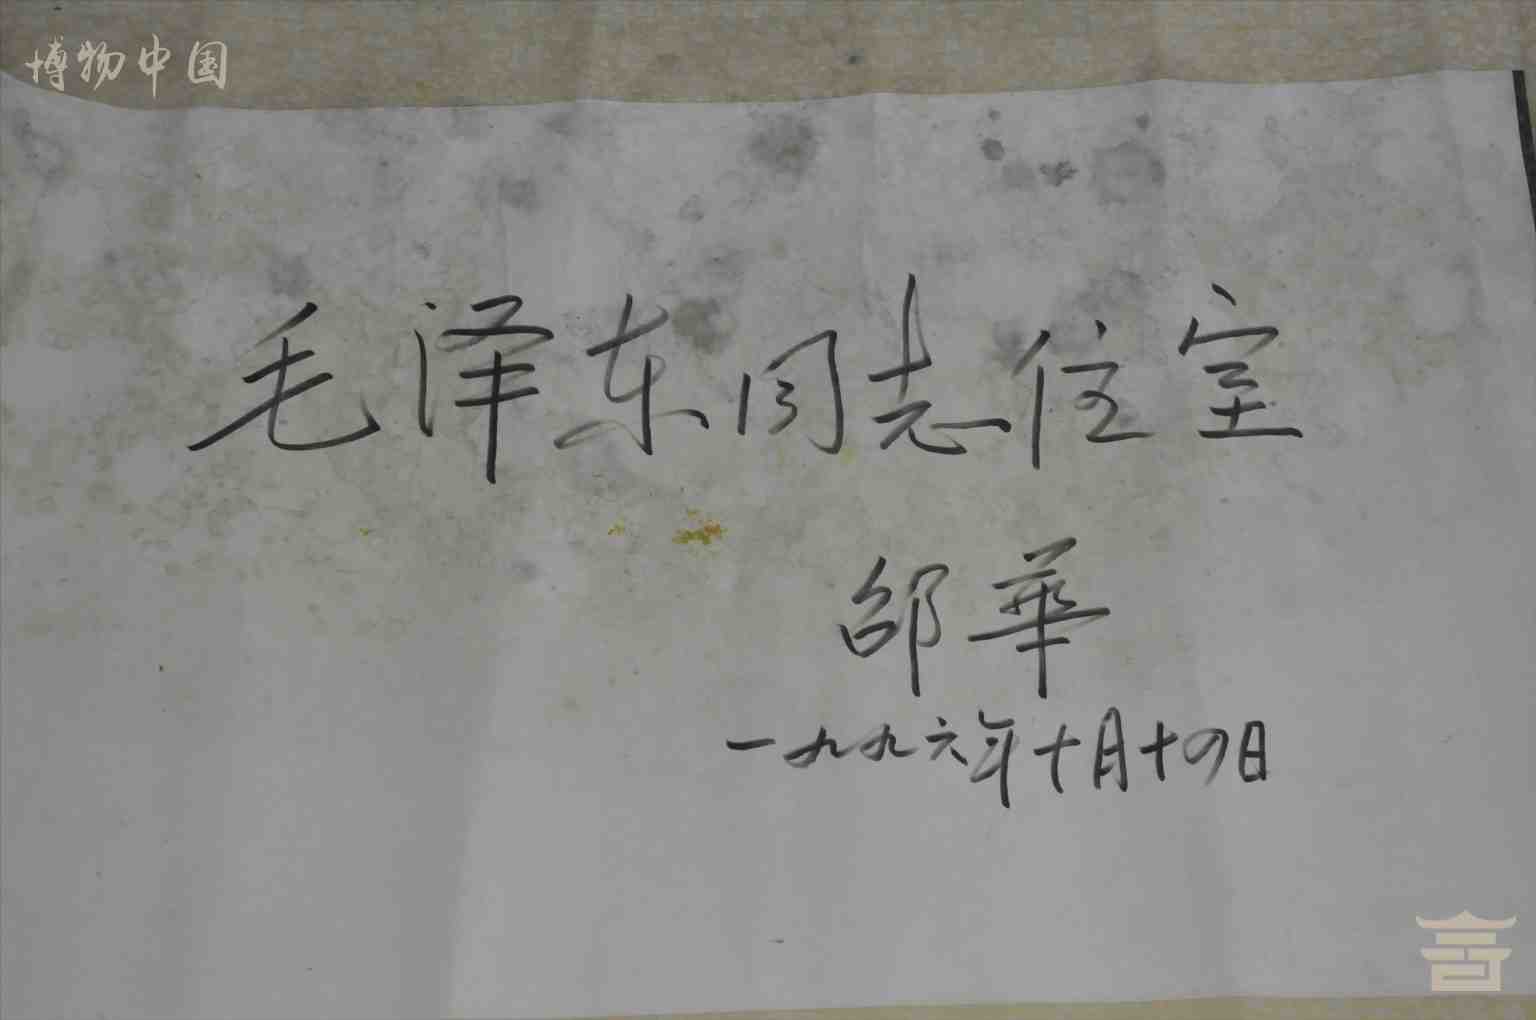 博物中国
毛泽东同志住室
邵華
一九九六年十月十四日